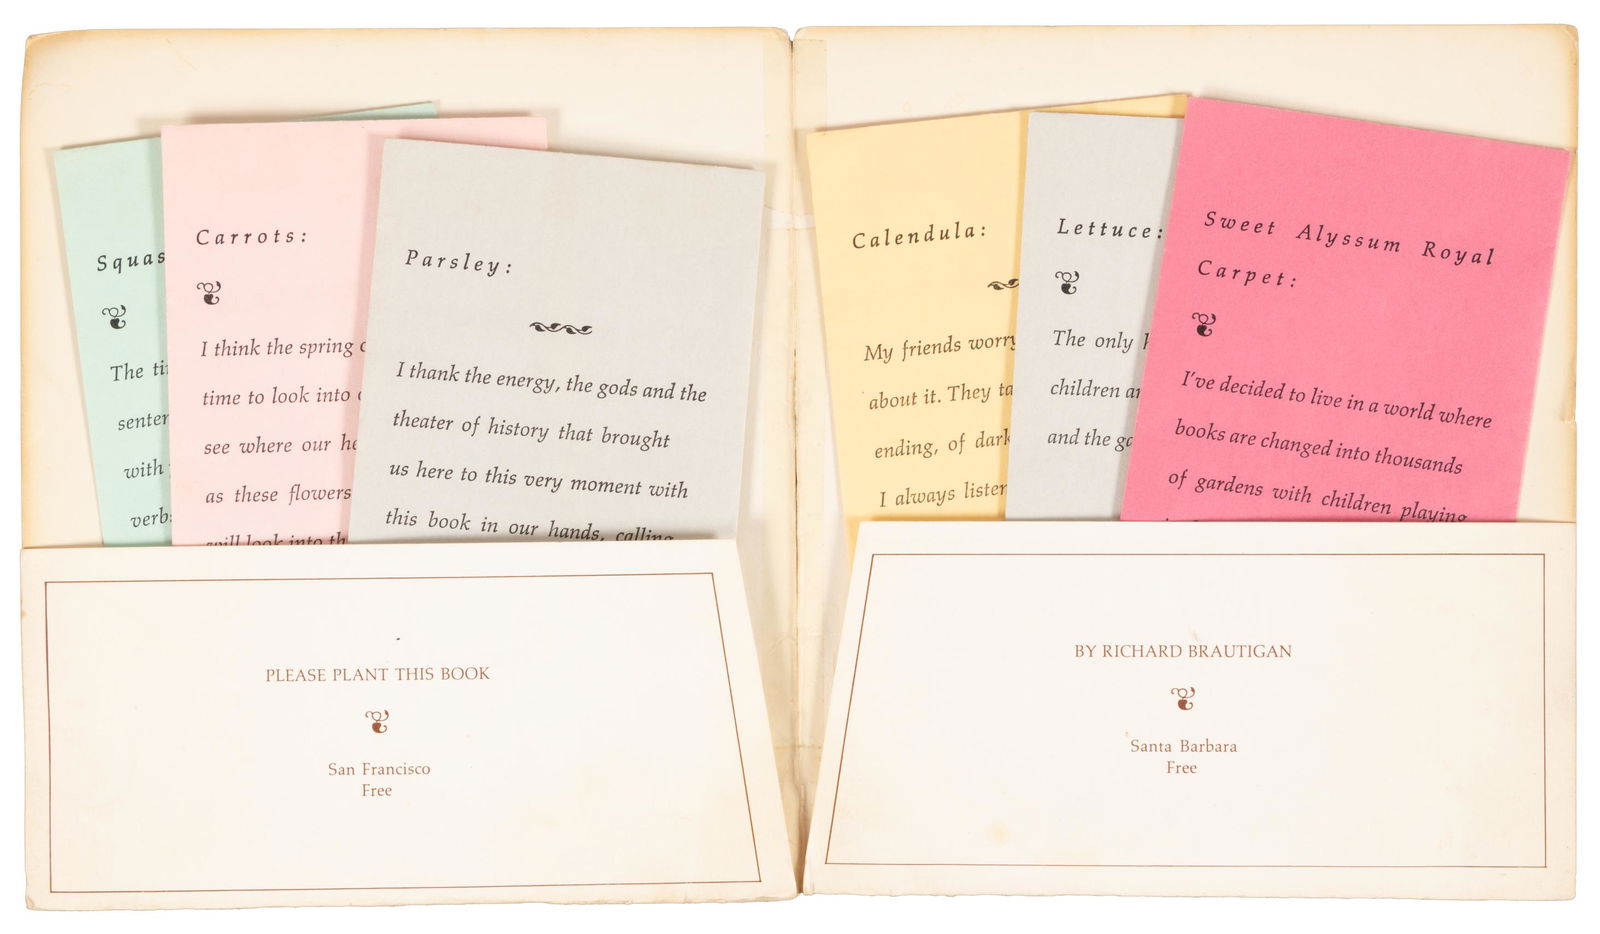 Squas
The
senter
with
verbs
Carrots:
I think the spring
time to look into
see where our he
as these flowers
will look into th
Parsley:
I thank the energy, the gods and the
theater of history that brought
us here to this very moment with
this book in our hands, calling
Calendula:
My friends worry
about it. They ta
ending, of dark
I always listen
Lettuce:
The only
children
and the ga
Sweet Alyssum Royal
Carpet:
I've decided to live in a world where
books are changed into thousands
of gardens with children playing
PLEASE PLANT THIS BOOK
San Francisco
Free
BY RICHARD BRAUTIGAN
Santa Barbara
Free